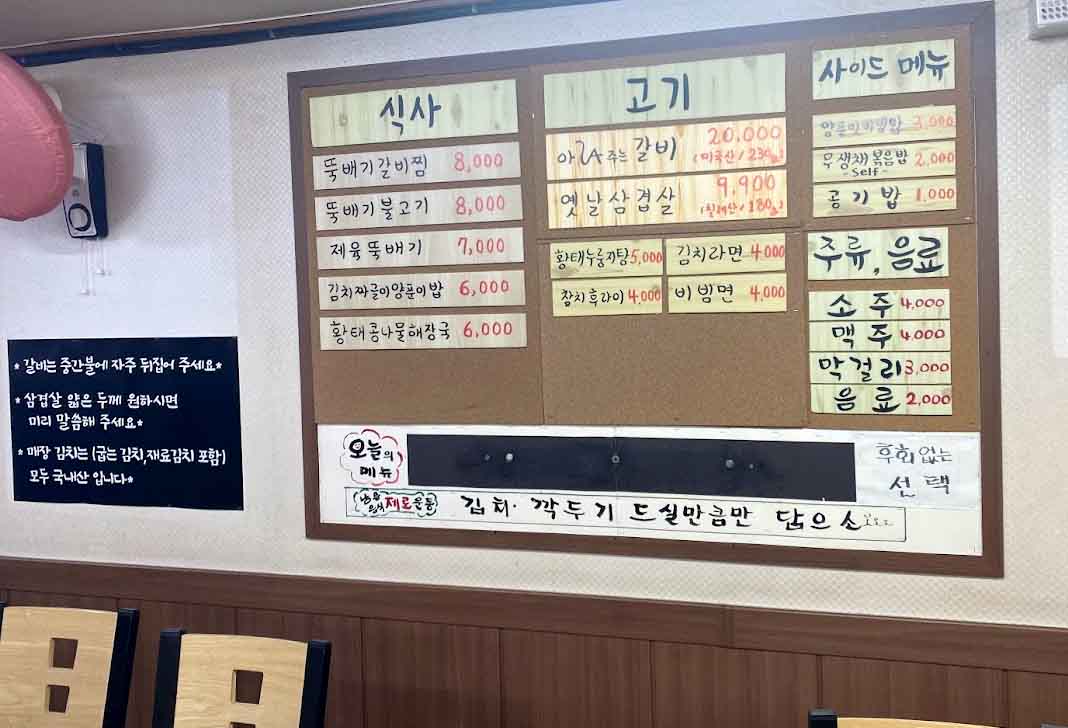 식사
뚝배기갈비찜 8,000
뚝배기불고기 8,000
제육뚝배기 7,000
김치짜글이양푼이밥 6,000
황태콩나물해장국 6,000
고기
아라주는갈비 20.000
(미국산/230g)
옛날삼겹살 9,900
(칠레산/180g)
황태누룽지탕 5,000
김치라면 4,000
참치후라이 4,000
비빔면 4,000
사이드 메뉴
양푼이비빔밥 3,000
무생채볶음밥 2,000
-self-
공기밥 1,000
주류, 음료
소주 4,000
맥주 4,000
막걸리 3,000
음료 2,000
* 갈비는 중간불에 자주 뒤집어 주세요*
* 삼겹살 얇은 두께 원하시면
미리 말씀해 주세요*
* 매장 김치는 (굽는 김치,재료김치 포함)
모두 국내산 입니다*
오늘의
메뉴
후회 없는
선택
남은 음식 제로운동
김치·깍두기 드실만큼만 담으소